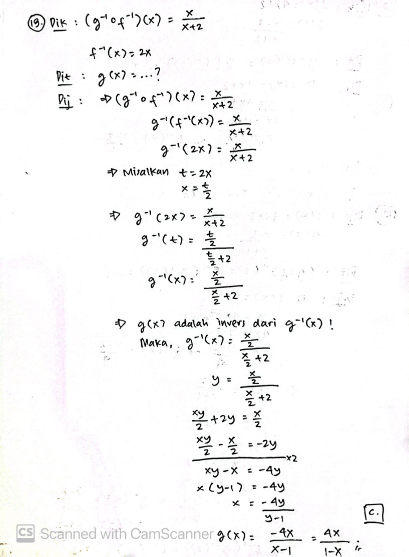 19. Dik : (g⁻¹ o f⁻¹)(x) = x/(x+2)
f⁻¹(x) = 2x
Dit : g(x) = ...?
Dij : ⇒ (g⁻¹ o f⁻¹)(x) = x/(x+2)
g⁻¹(f⁻¹(x)) = x/(x+2)
g⁻¹(2x) = x/(x+2)
⇒ Misalkan t = 2x
x = t/2
⇒ g⁻¹(2x) = x/(x+2)
g⁻¹(t) = (t/2)/(t/2 + 2)
g⁻¹(x) = (x/2)/(x/2 + 2)
⇒ g(x) adalah invers dari g⁻¹(x) !
Maka, g⁻¹(x) = (x/2)/(x/2 + 2)
y = (x/2)/(x/2 + 2)
xy/2 + 2y = x/2
xy/2 - x/2 = -2y
×2
xy - x = -4y
x(y-1) = -4y
x = -4y/(y-1)
C.
g(x) = -4x/(x-1) = 4x/(1-x)
CS Scanned with CamScanner